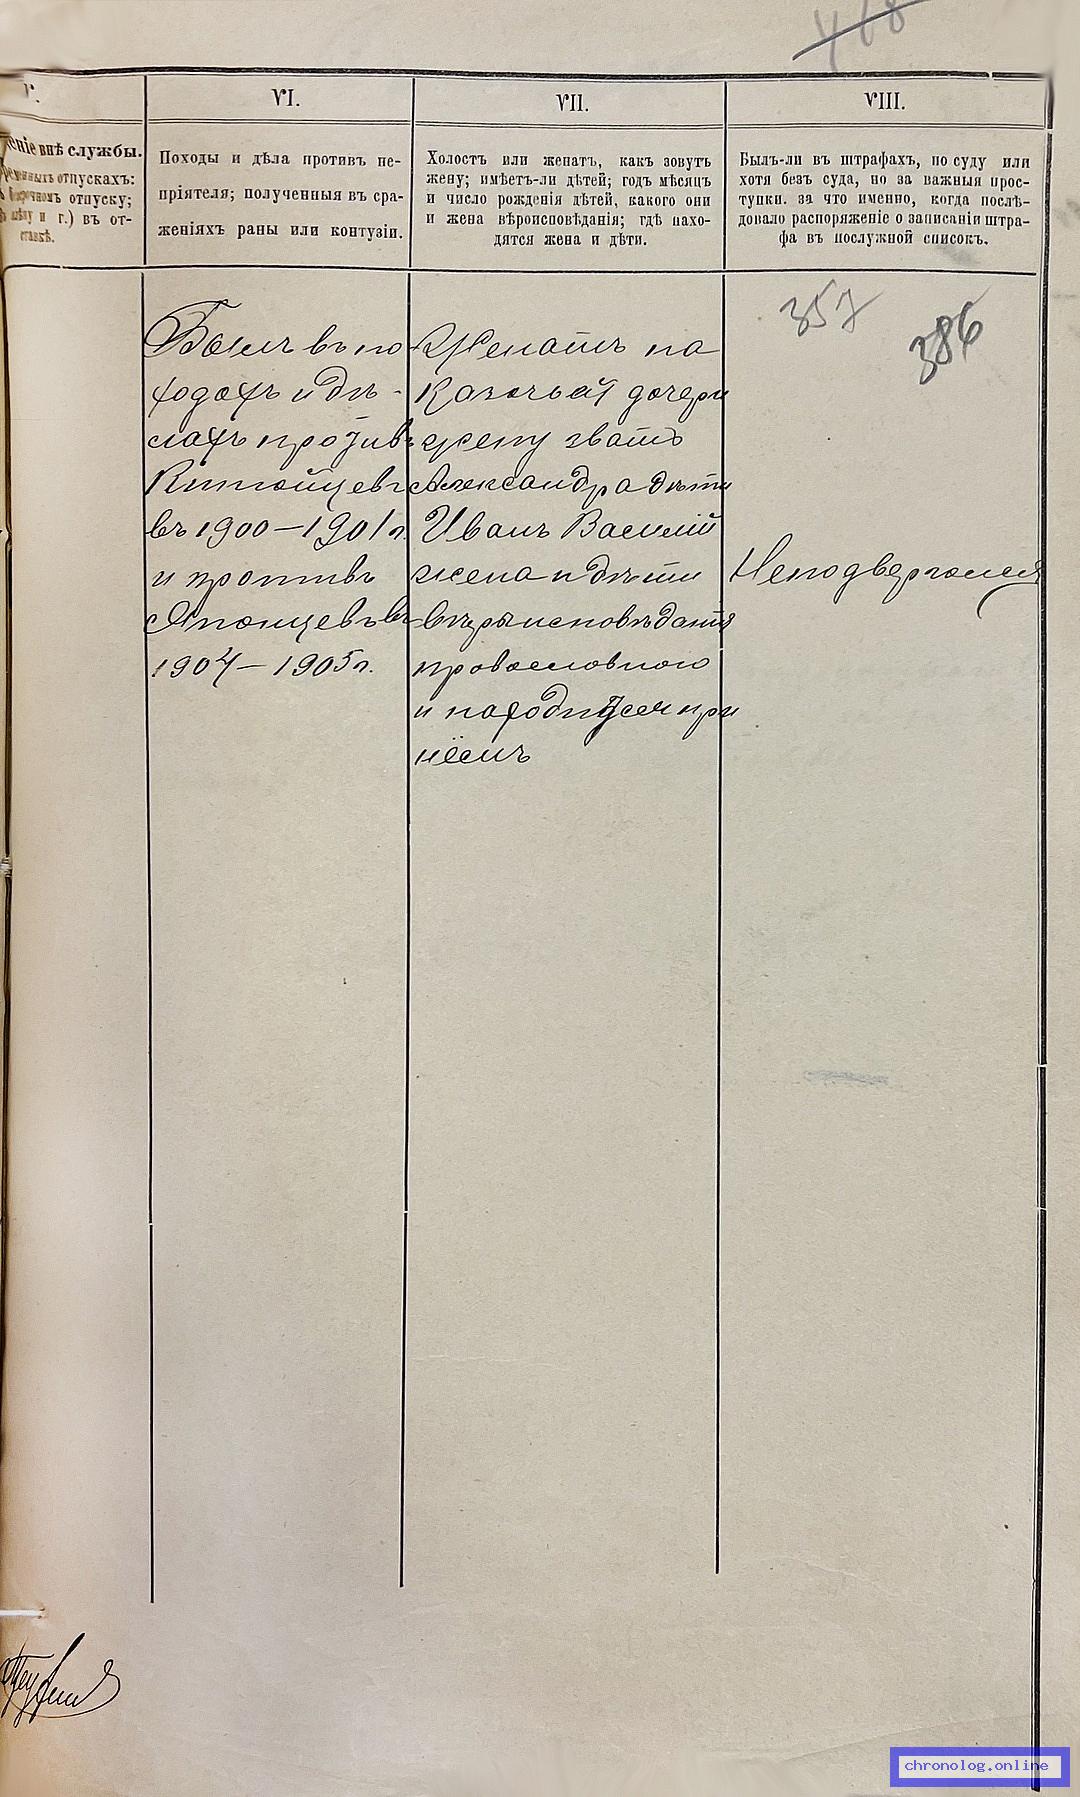 468
VI.
VII.
VIII.
внѣ службы.
отпускахъ:
отпуску;
и г.) въ от-
ставкѣ.
Походы и дѣла противъ не-
пріятеля; полученныя въ сра-
женіяхъ раны или контузіи.
Холостъ или женатъ, какъ зовутъ
жену; имѣетъ-ли дѣтей; годъ мѣсяцъ
и число рожденія дѣтей, какого они
и жена вѣроисповѣданія; гдѣ нахо-
дятся жена и дѣти.
Былъ-ли въ штрафахъ, по суду или
хотя безъ суда, но за важныя прос-
тупки. за что именно, когда послѣ-
довало распоряженіе о записаніи штра-
фа въ послужной списокъ.
357
386
Былъ въ по
ходахъ и дѣ-
лахъ противъ
Китайцевъ
въ 1900-1901 г.
и противъ
Японцевъ въ
1904-1905 г.
Женатъ на
Казачьей дочери
жену зватъ
Александра дѣти
Иванъ Василій
жена и дѣти
вѣры исповѣданія
православного
и находятся при
нёмъ
Неподвергался
chronolog.online